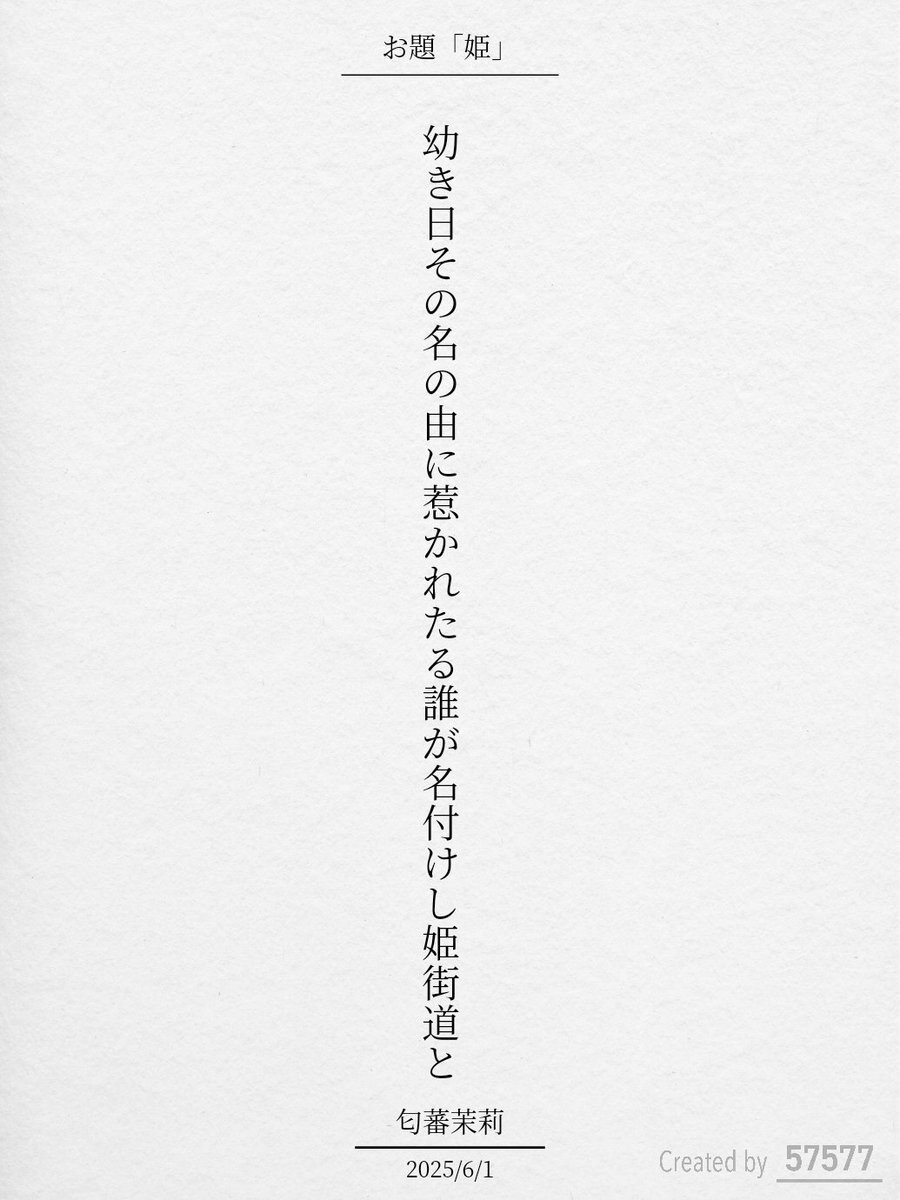 お題「姫」
幼き日その名の由に惹かれたる誰が名付けし姫街道と
匂蕃茉莉
2025/6/1
Created by 57577